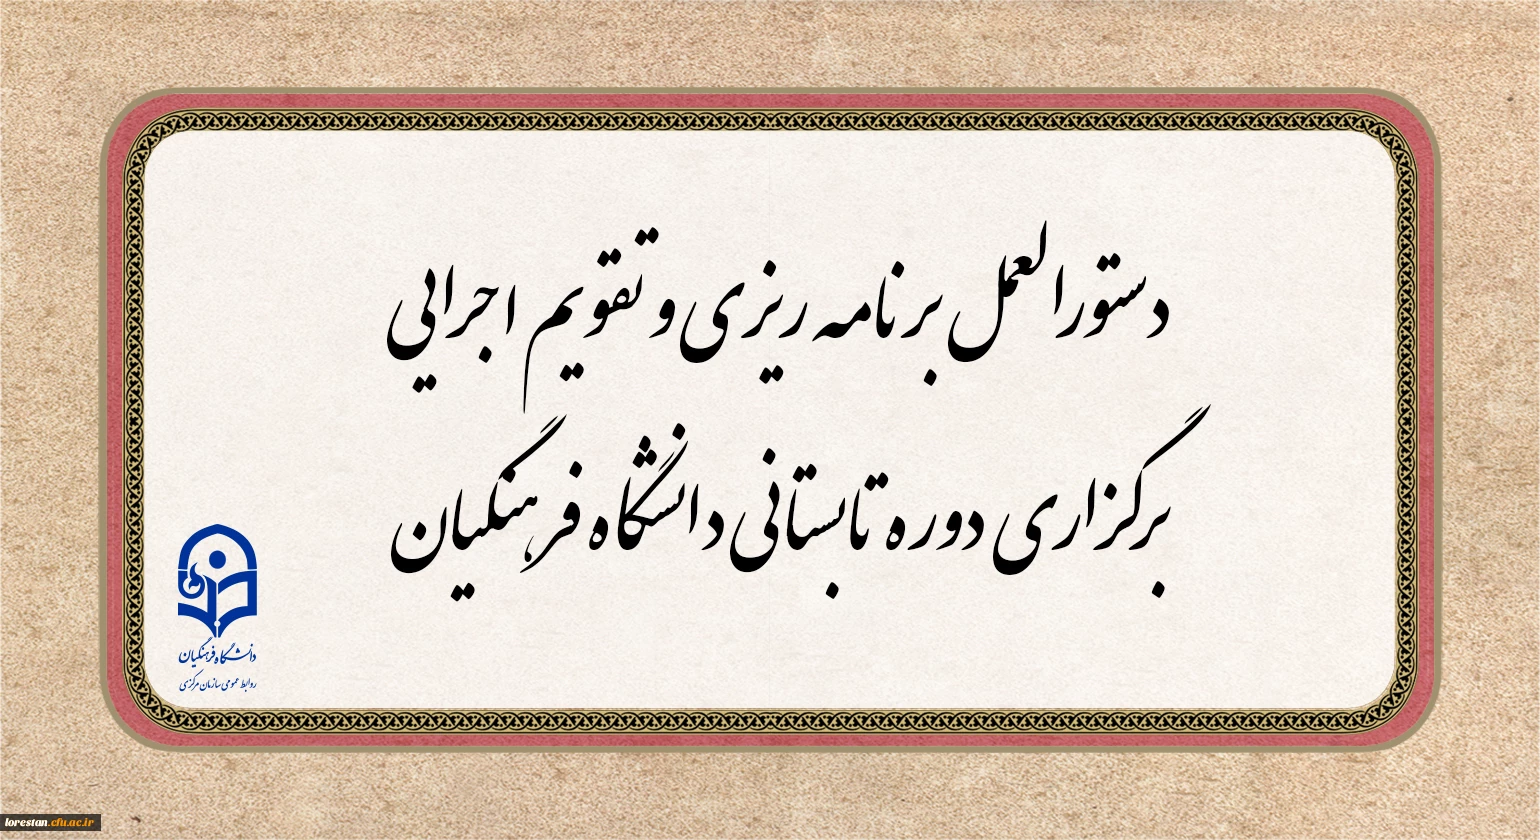 دستورالعمل برنامه ریزی و تقویم اجرایی
برگزاری دوره تابستانی دانشگاه فرهنگیان
دانشگاه فرهنگیان
روابط عمومی سازمان مرکزی
lorestan.cfu.ac.ir